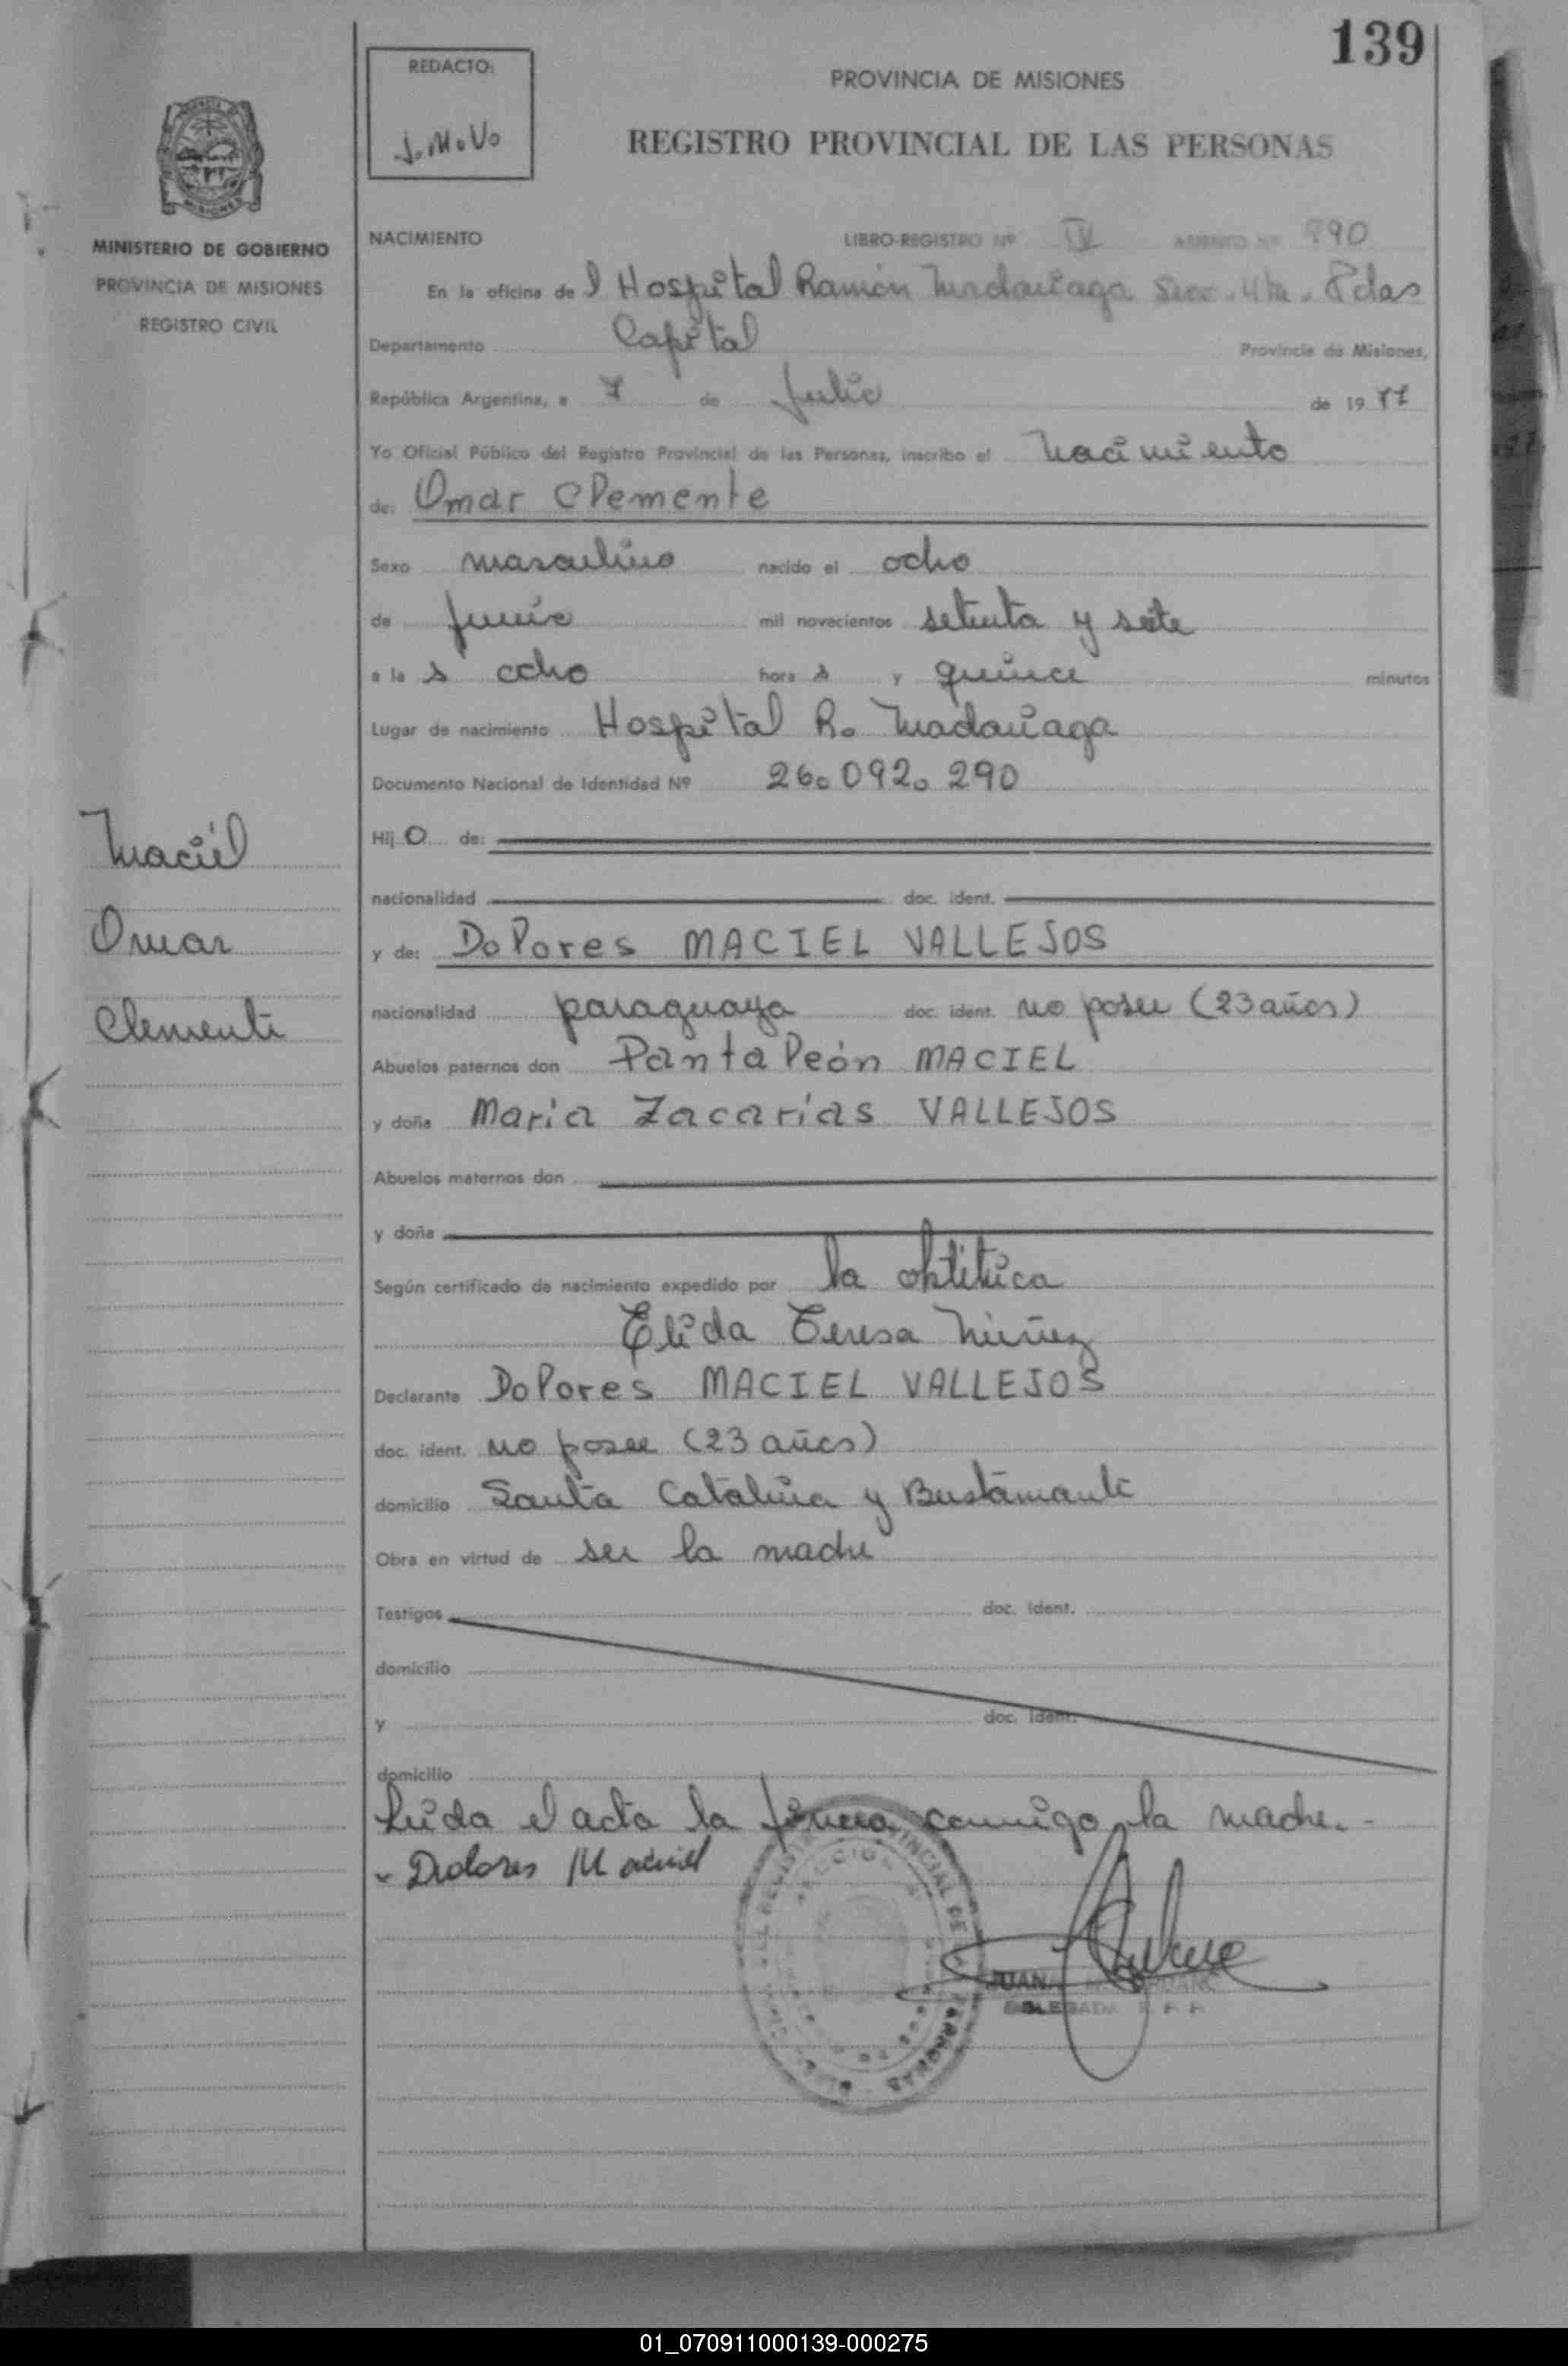 139
REDACTO:
J.M.V.
PROVINCIA DE MISIONES
REGISTRO PROVINCIAL DE LAS PERSONAS
MINISTERIO DE GOBIERNO
PROVINCIA DE MISIONES
REGISTRO CIVIL
NACIMIENTO LIBRO-REGISTRO Nº IV ASIENTO Nº 890
En la oficina de l Hospital Ramón Madariaga Secc. 4ta. Pdas
Departamento Capital Provincia de Misiones,
República Argentina, a 7 de Julio de 1977
Yo Oficial Público del Registro Provincial de las Personas, inscribo el Nacimiento
de: Omar Clemente
Sexo masculino nacido el ocho
de Junio mil novecientos setenta y siete
a la s ocho hora s y quince minutos
Lugar de nacimiento Hospital R. Madariaga
Documento Nacional de Identidad Nº 26.092.290
Maciel
Omar
Clemente
Hij o de:
nacionalidad doc. ident.
y de: Dolores MACIEL VALLEJOS
nacionalidad paraguaya doc. ident. no posee (23 años)
Abuelos paternos don Pantaleón MACIEL
y doña Maria Zacarías VALLEJOS
Abuelos maternos don
y doña
Según certificado de nacimiento expedido por la obstétrica
Elida Teresa Núñez
Declarante Dolores MACIEL VALLEJOS
doc. ident. no posee (23 años)
domicilio Santa Catalina y Bustamante
Obra en virtud de ser la madre
Testigos doc. ident.
domicilio
y doc. ident.
domicilio
Leida el acta la firma conmigo la madre.-
- Dolores Maciel
JUANA
DELEGADA R P P
01_070911000139-000275